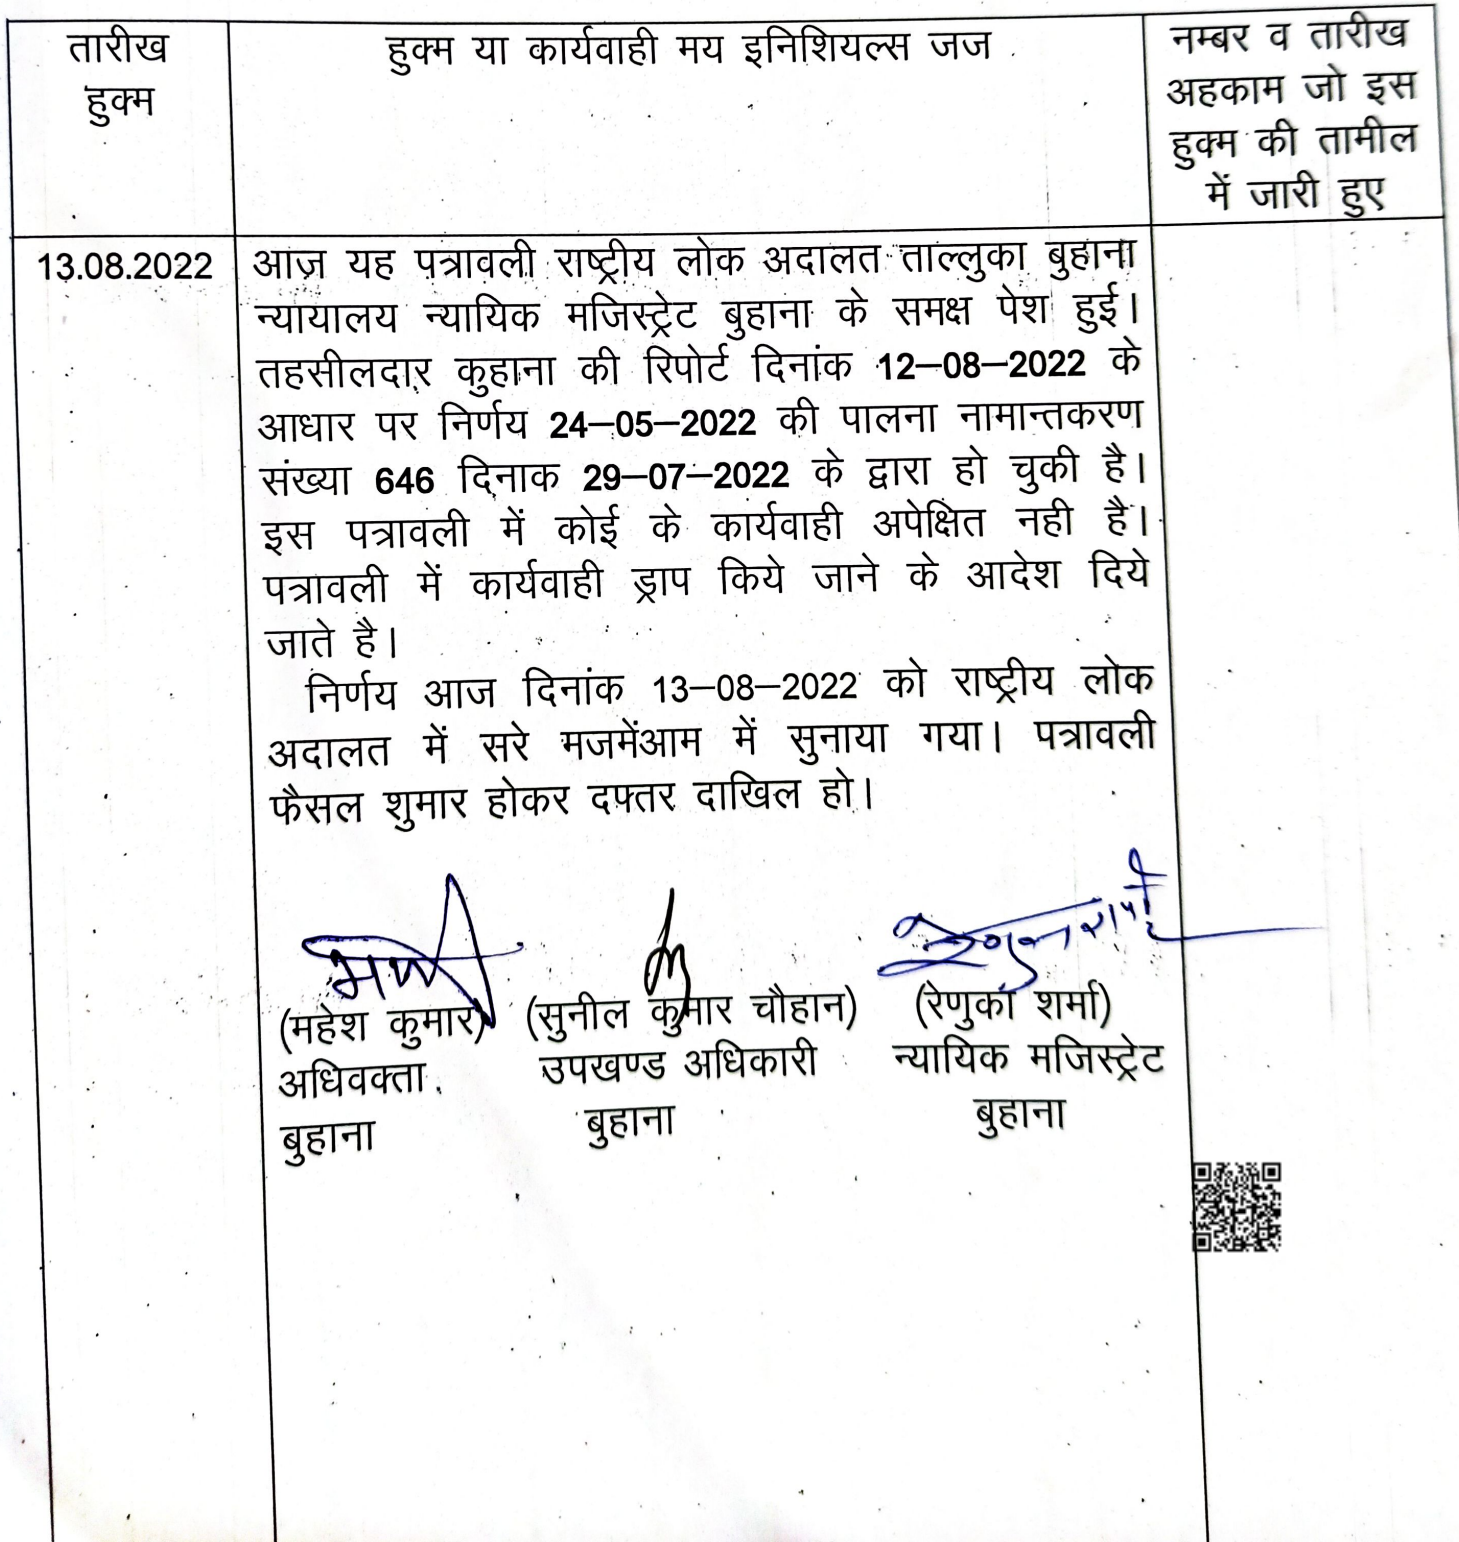 तारीख
हुक्म
हुक्म या कार्यवाही मय इनिशियल्स जज
नम्बर व तारीख
अहकाम जो इस
हुक्म की तामील
में जारी हुए
13.08.2022
आज यह पत्रावली राष्ट्रीय लोक अदालत ताल्लुका बुहाना
न्यायालय न्यायिक मजिस्ट्रेट बुहाना के समक्ष पेश हुई।
तहसीलदार कुहाना की रिपोर्ट दिनांक 12–08–2022 के
आधार पर निर्णय 24–05–2022 की पालना नामान्तकरण
संख्या 646 दिनाक 29–07–2022 के द्वारा हो चुकी है।
इस पत्रावली में कोई के कार्यवाही अपेक्षित नही है।
पत्रावली में कार्यवाही ड्राप किये जाने के आदेश दिये
जाते है।
निर्णय आज दिनांक 13–08–2022 को राष्ट्रीय लोक
अदालत में सरे मजमेंआम में सुनाया गया। पत्रावली
फैसल शुमार होकर दफ्तर दाखिल हो।
(महेश कुमार) (सुनील कुमार चौहान) (रेणुका शर्मा)
अधिवक्ता उपखण्ड अधिकारी न्यायिक मजिस्ट्रेट
बुहाना बुहाना बुहाना